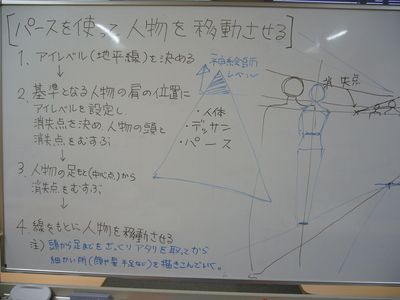 [パースを使って人物を移動させる]
1. アイレベル(地平線)を決める
↓
2. 基準となる人物の肩の位置に
アイレベルを設定し
消失点を決め、人物の頭と
消失点をむすぶ
↓
3. 人物の足もと(中心点)から
消失点をむすぶ
↓
4. 線をもとに人物を移動させる
注) 頭から足までをざっくりアタリを取ってから
細かい所(顔や髪、手足など)を描きこんでいく。
神絵師
レベル
・人体
・デッサン
・パース
消失点